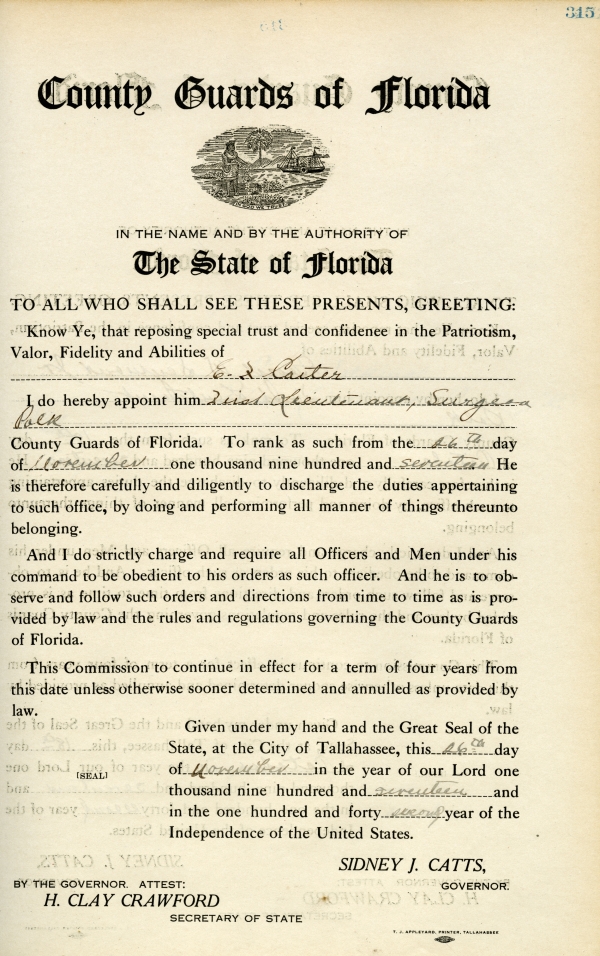 315
County Guards of Florida
IN THE NAME AND BY THE AUTHORITY OF
The State of Florida
TO ALL WHO SHALL SEE THESE PRESENTS, GREETING:
Know Ye, that reposing special trust and confidence in the Patriotism,
Valor, Fidelity and Abilities of
E. I Carter
I do hereby appoint him First Lieutenant, Surgeon
Polk
County Guards of Florida. To rank as such from the 26th day
of November one thousand nine hundred and seventeen He
is therefore carefully and diligently to discharge the duties appertaining
to such office, by doing and performing all manner of things thereunto
belonging.
And I do strictly charge and require all Officers and Men under his
command to be obedient to his orders as such officer. And he is to ob-
serve and follow such orders and directions from time to time as is pro-
vided by law and the rules and regulations governing the County Guards
of Florida.
This Commission to continue in effect for a term of four years from
this date unless otherwise sooner determined and annulled as provided by
law.
Given under my hand and the Great Seal of the
State, at the City of Tallahassee, this 26th day
[SEAL] of November in the year of our Lord one
thousand nine hundred and seventeen and
in the one hundred and forty second year of the
Independence of the United States.
SIDNEY J. CATTS,
BY THE GOVERNOR. ATTEST: GOVERNOR.
H. CLAY CRAWFORD
SECRETARY OF STATE
T. J. APPLEYARD, PRINTER, TALLAHASSEE